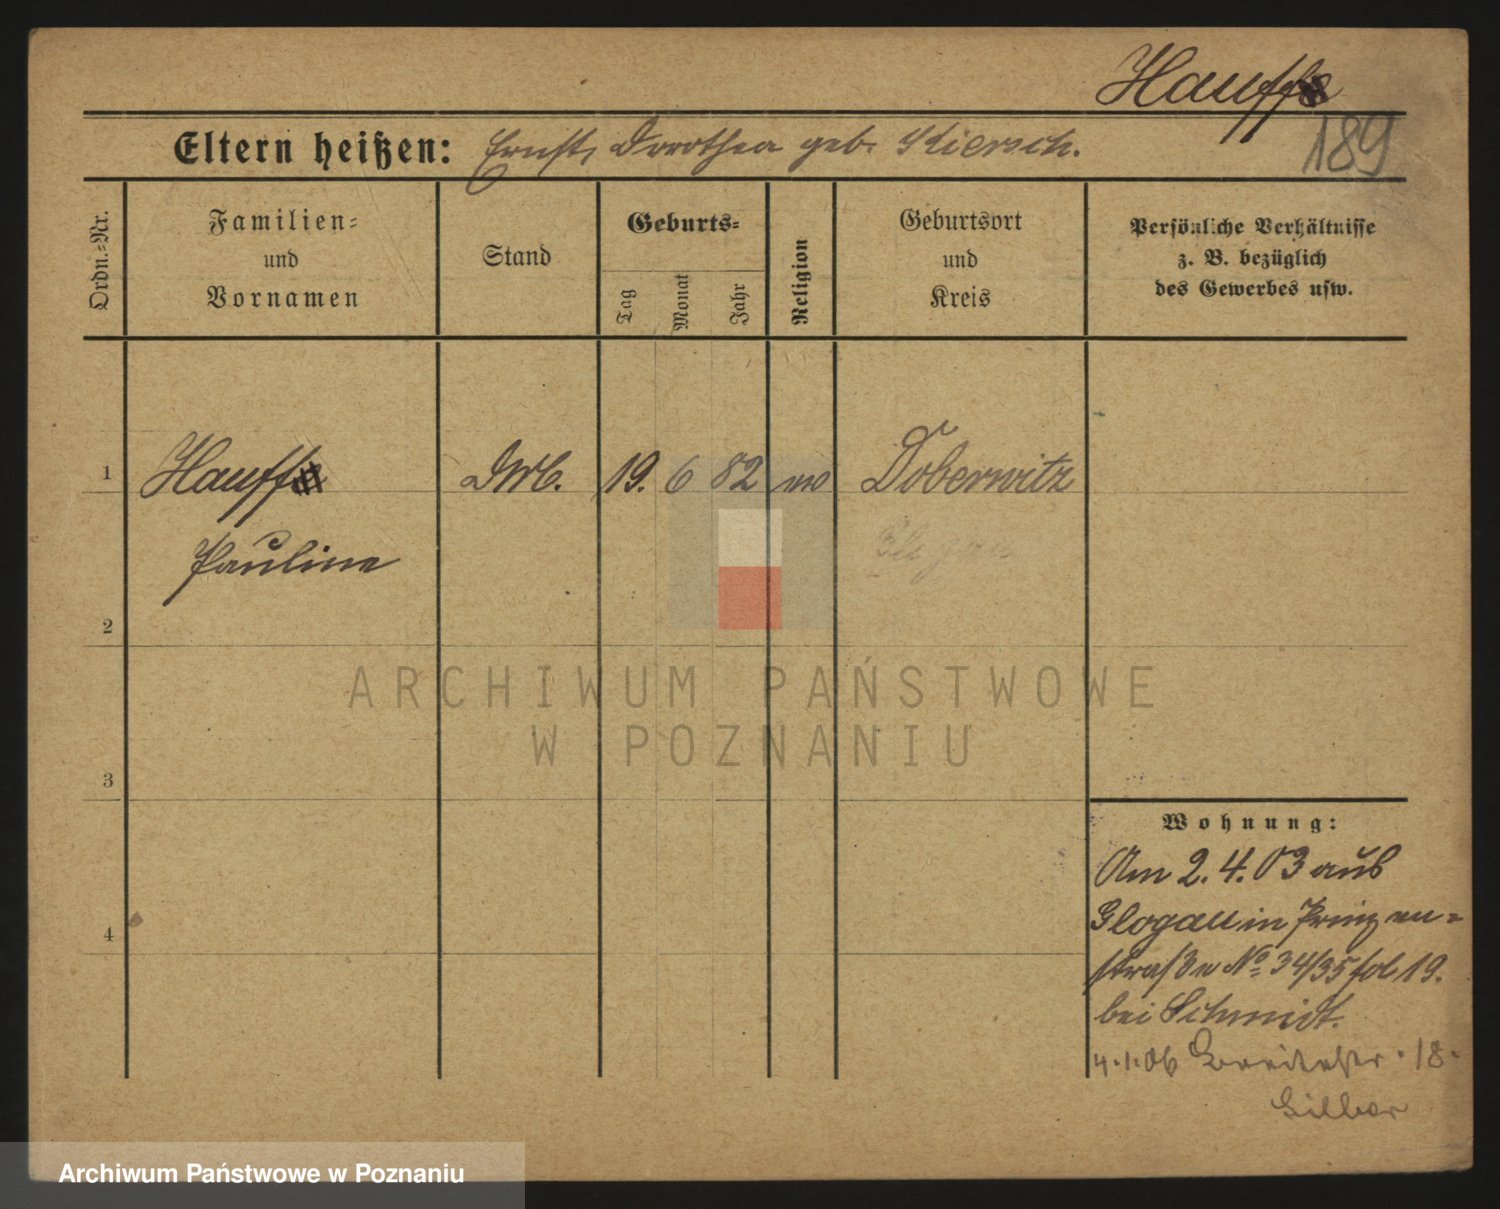 Hauff
189
Eltern heißen: Ernst, Dorothea geb. Kiersch.
Ordn.-Nr.
Familien-
und
Vornamen
Stand
Geburts-
Tag
Monat
Jahr
Religion
Geburtsort
und
Kreis
Persönliche Verhältnisse
z. B. bezüglich
des Gewerbes usw.
1 Hauff 19. 6 82 Doberwitz
Pauline
2
3
4
Wohnung:
Am 2. 4. 03 aus
Glogau in Prinzen-
straße No 34/35 fol 19.
bei Schmidt.
4.1.06 Breitestr. 18.
ARCHIWUM PAŃSTWOWE
W POZNANIU
Archiwum Państwowe w Poznaniu